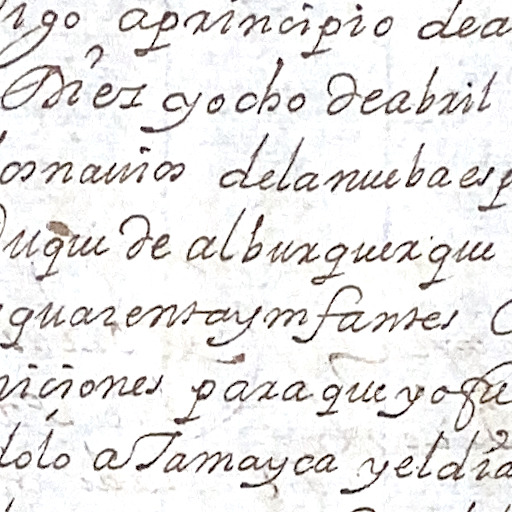 digo aprincipio dea
Diez yocho deabril
losnauios delanuebaesp
Duque de alburquerque
quarentayynfantes
niciones paraque yo fue
dolo aJamayca yeldia